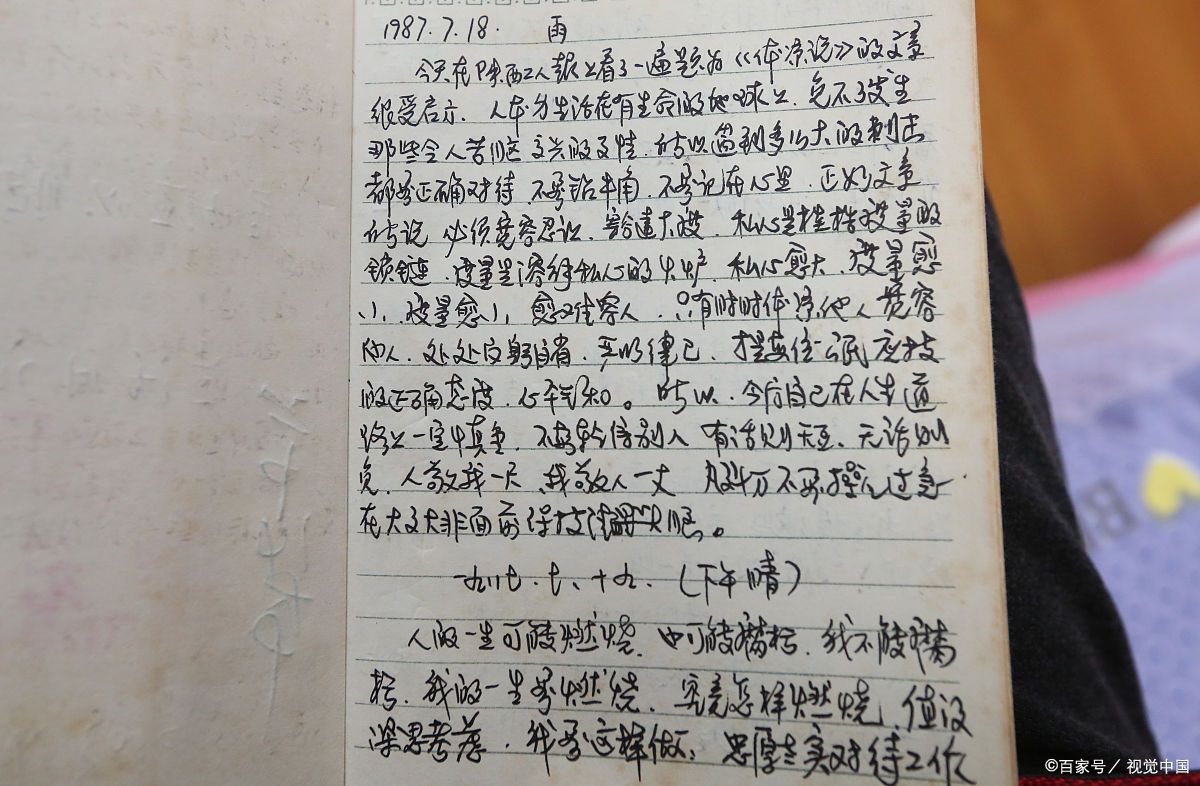 1987.7.18. 雨
今天在陕西工人报上看了一遍题为《体凉说》的文章
很受启示. 人本身生活在有生命的地球上. 免不了发生
那些令人苦恼 的事情. 所以遇到多么大的刺击
都要正确对待. 不要钻牛角. 不要记在心里. 正如文章
所说 必须宽容忍让. 豁达大度. 私心是桎梏度量的
锁链. 度量是溶解私心的火炉. 私心愈大. 度量愈
小. 度量愈小 愈难容人. 只有时时体凉他人 宽容
他人. 处处反躬自省. 严以律己. 才是每位公民应持
的正确态度. 心平气和。所以. 今后自己在人生道
路上一定要慎重. 不要轻信别人 有话则 无话则
免. 人敬我一尺 我敬人一丈 万不要操之过急
在大是大非面前保持清醒头脑。
一九八七. 七. 十九. (下午晴)
人的一生可能燃烧. 也可能腐朽. 我不能腐
朽. 我的一生要燃烧. 究竟怎样燃烧. 值得
深思考虑. 我要这样做: 忠厚老实对待工作
©百家号/视觉中国